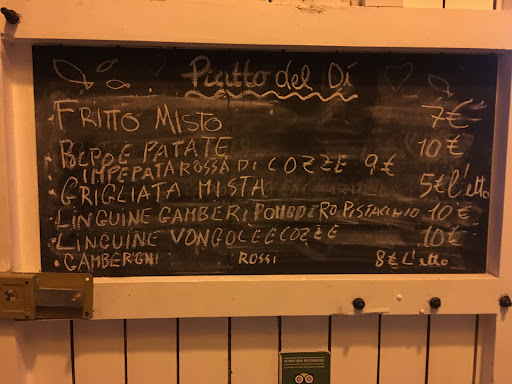 Piatto del Dì
FRITTO MISTO 7€
POLPO E PATATE 10€
IMPEPATA ROSSA DI COZZE 9€
GRIGLIATA MISTA 5€ l'etto
LINGUINE GAMBERI POMODORO PISTACCHIO 10€
LINGUINE VONGOLE E COZZE 10€
GAMBERONI ROSSI 8€ l'etto